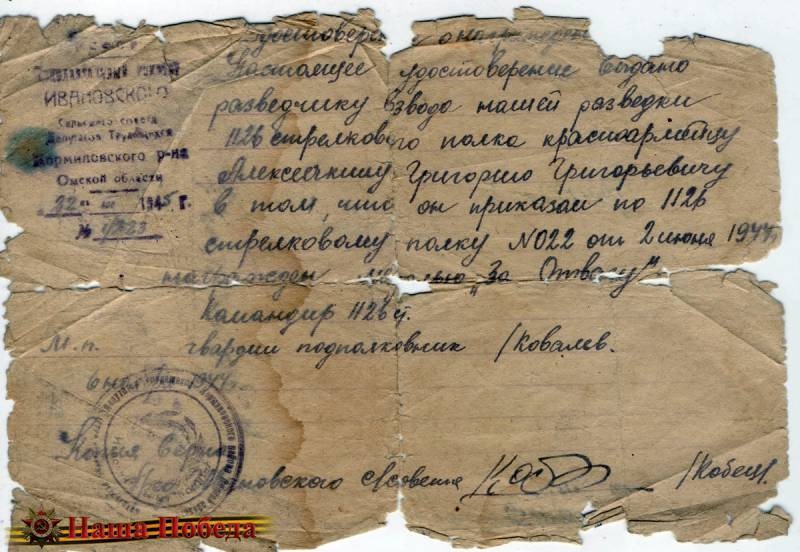 Исполнительный комитет
ИВАНОВСКОГО
Сельского совета
Депутатов Трудящихся
Кормиловского р-на
Омской области
"22" III 1945 г.
№
Настоящее удостоверение выдано
разведчику взвода пешей разведки
1126 стрелкового полка красноармейцу
Григорию Григорьевичу
в том, что он приказом по 1126
стрелковому полку №022 от 2 июня 1944г.
награжден медалью "За Отвагу"
Командир 1126 сп.
М.п. гвардии подполковник /Ковалев.
1944
Копия верна
Ивановского с/совета /Кобец/.
Наша Победа